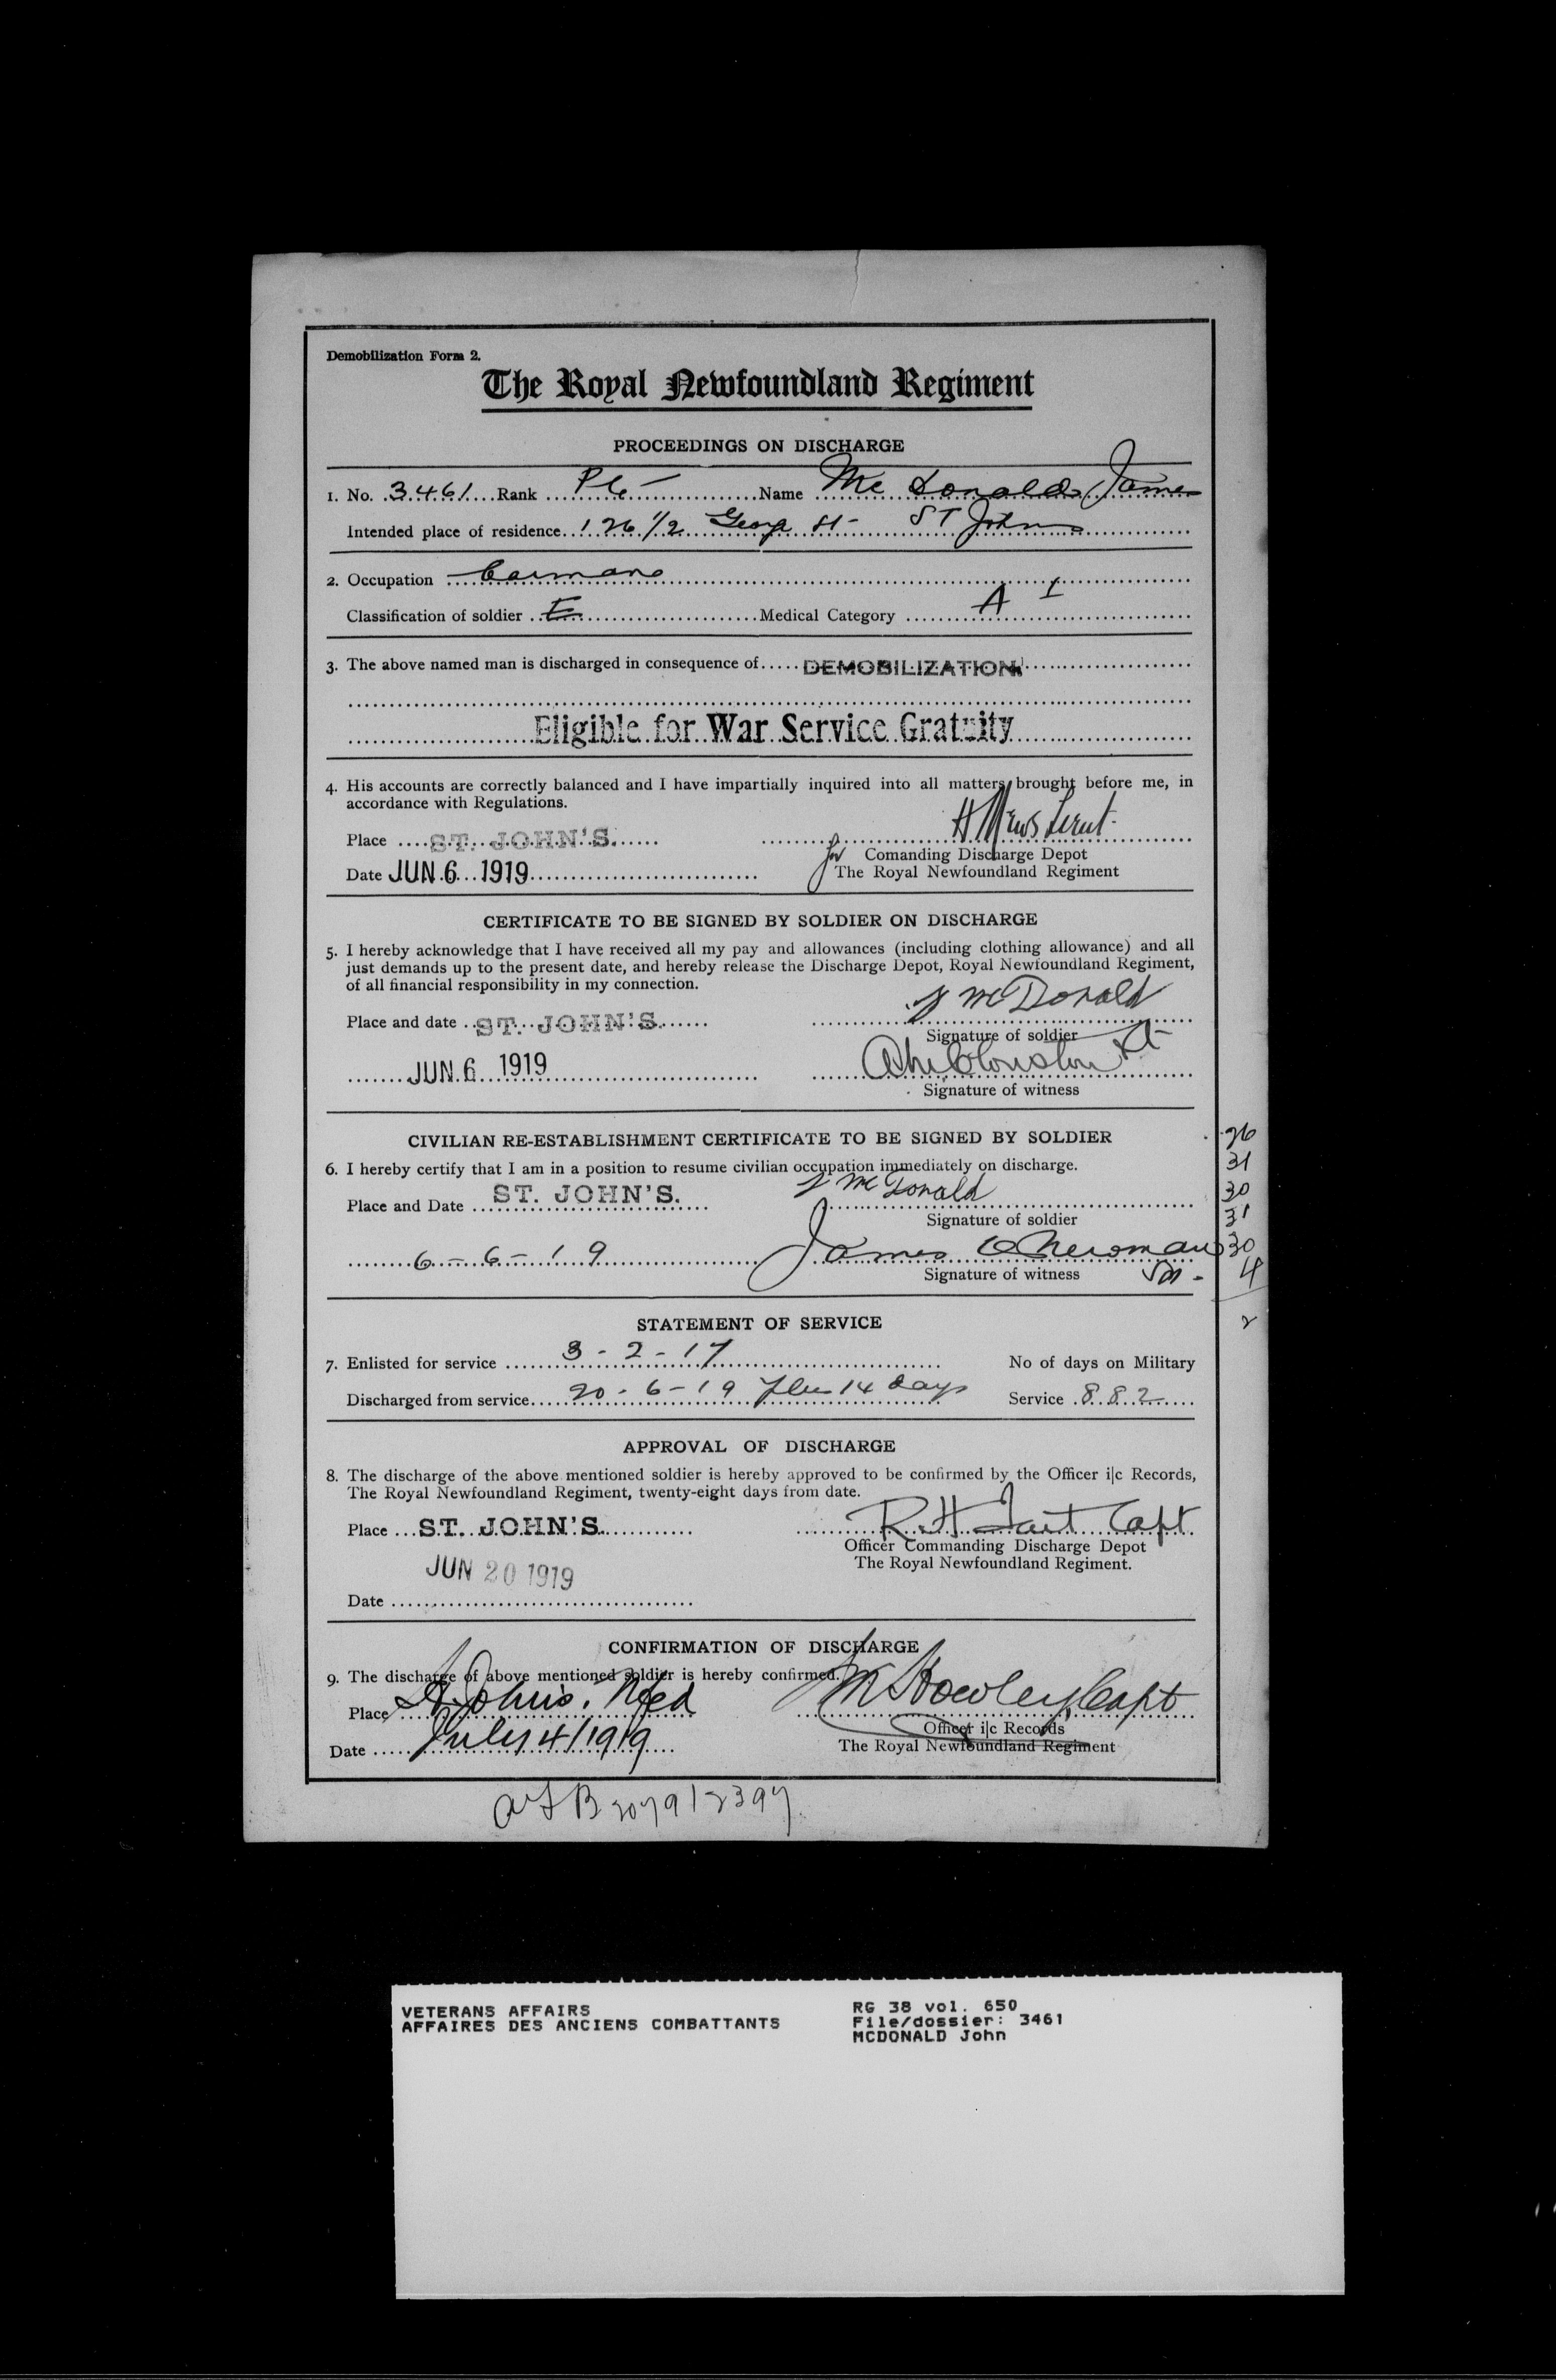 Demobilization Form 2.
The Royal Newfoundland Regiment
PROCEEDINGS ON DISCHARGE
1. No. 3461 Rank Pte Name Mc Donald James
Intended place of residence 126 1/2 George St - ST Johns
2. Occupation Carman
Classification of soldier E Medical Category A I
3. The above named man is discharged in consequence of DEMOBILIZATION
Eligible for War Service Gratuity
4. His accounts are correctly balanced and I have impartially inquired into all matters brought before me, in
accordance with Regulations.
Place ST. JOHN'S. H Mews Lieut.
for Comanding Discharge Depot
Date JUN 6 1919 The Royal Newfoundland Regiment
CERTIFICATE TO BE SIGNED BY SOLDIER ON DISCHARGE
5. I hereby acknowledge that I have received all my pay and allowances (including clothing allowance) and all
just demands up to the present date, and hereby release the Discharge Depot, Royal Newfoundland Regiment,
of all financial responsibility in my connection.
J McDonald
Place and date ST. JOHN'S.
Signature of soldier
JUN 6 1919
Signature of witness
CIVILIAN RE-ESTABLISHMENT CERTIFICATE TO BE SIGNED BY SOLDIER
26
6. I hereby certify that I am in a position to resume civilian occupation immediately on discharge.
31
Place and Date ST. JOHN'S. J McDonald
30
Signature of soldier
31
6-6-19 James O Newman
30
Signature of witness
4
STATEMENT OF SERVICE
2
7. Enlisted for service 3-2-17 No of days on Military
Discharged from service 20-6-19 Plus 14 days Service 882
APPROVAL OF DISCHARGE
8. The discharge of the above mentioned soldier is hereby approved to be confirmed by the Officer i|c Records,
The Royal Newfoundland Regiment, twenty-eight days from date.
Place ST. JOHN'S R.H. Tait Capt
Officer Commanding Discharge Depot
The Royal Newfoundland Regiment.
JUN 20 1919
Date
CONFIRMATION OF DISCHARGE
9. The discharge of above mentioned soldier is hereby confirmed.
Place St. John's. Nfld M Howley, Capt
Officer i|c Records
Date July 4/1919 The Royal Newfoundland Regiment
VETERANS AFFAIRS RG 38 vol. 650
AFFAIRES DES ANCIENS COMBATTANTS File/dossier: 3461
MCDONALD John